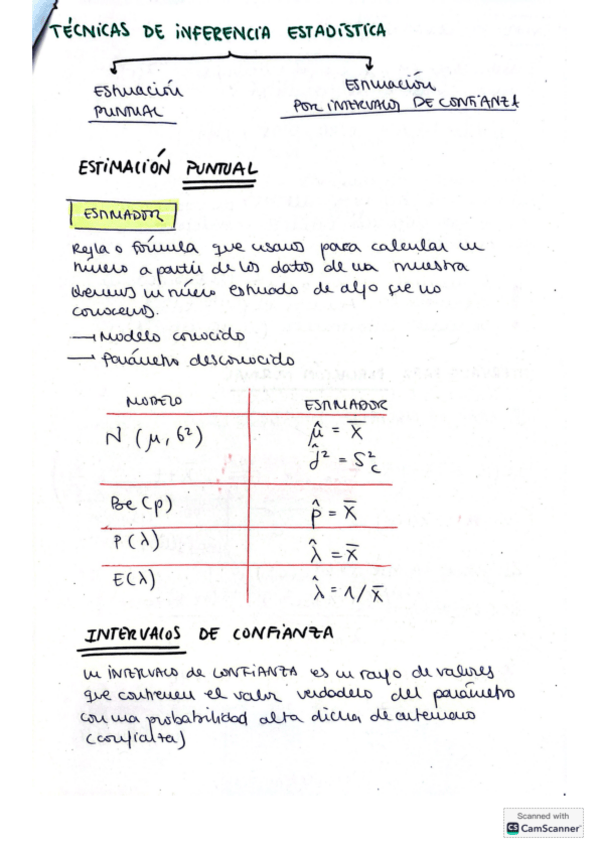 TÉCNICAS DE INFERENCIA ESTADÍSTICA
Estimación
PUNTUAL
Estimación
POR INTERVALOS DE CONFIANZA
ESTIMACIÓN PUNTUAL
ESTIMADOR
Regla o fórmula que usamos para calcular un
número a partir de los datos de una muestra
obtenemos un número estimado de algo que no
conocemos.
→ Modelo conocido
→ Parámetro desconocido
MODELO ESTIMADOR
N (μ, σ²) μ̂ = X̄
σ̂² = S²c
Be (p) p̂ = X̄
P (λ) λ̂ = X̄
E (λ) λ̂ = 1/X̄
INTERVALOS DE CONFIANZA
un INTERVALO de CONFIANZA es un rango de valores
que contienen el valor verdadero del parámetro
con una probabilidad alta dicha de antemano
(confianza)
Scanned with
CS CamScanner